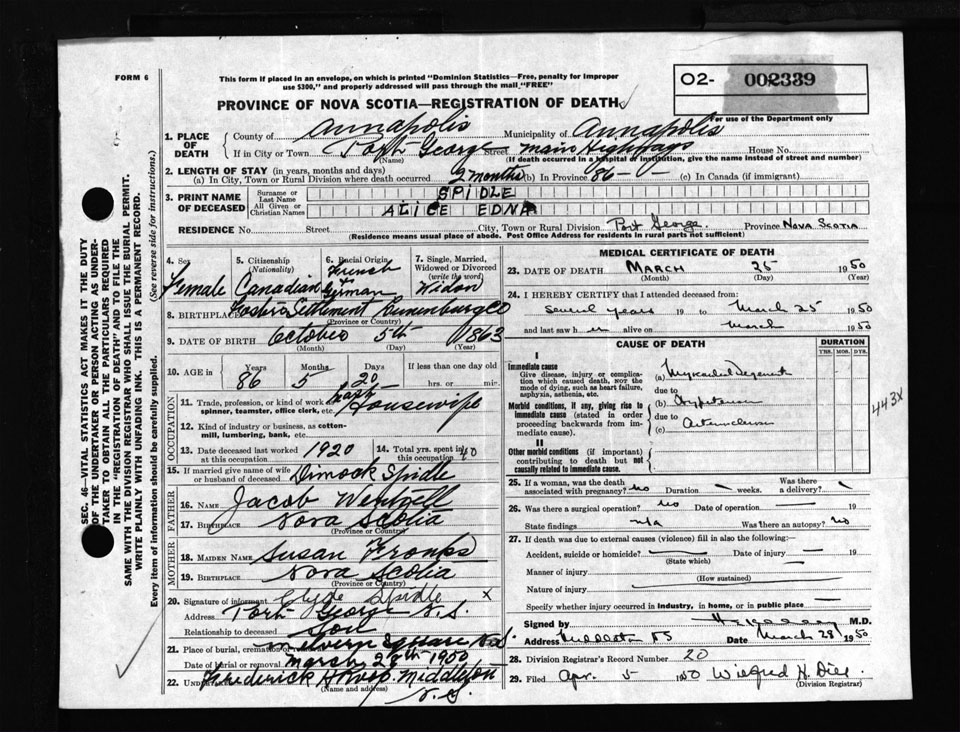 FORM 6
This form if placed in an envelope, on which is printed "Dominion Statistics—Free, penalty for improper
use $300," and properly addressed will pass through the mail "FREE"
02- 002339
For use of the Department only
PROVINCE OF NOVA SCOTIA—REGISTRATION OF DEATH
SEC. 46—VITAL STATISTICS ACT MAKES IT THE DUTY
OF THE UNDERTAKER OR PERSON ACTING AS UNDER-
TAKER TO OBTAIN ALL THE PARTICULARS REQUIRED
IN THE "REGISTRATION OF DEATH" AND TO FILE THE
SAME WITH THE DIVISION REGISTRAR WHO SHALL ISSUE THE BURIAL PERMIT.
WRITE PLAINLY WITH UNFADING INK. THIS IS A PERMANENT RECORD.
Every item of information should be carefully supplied. (See reverse side for instructions.)
1. PLACE OF DEATH County of Annapolis Municipality of Annapolis
If in City or Town Port George Street Main Highways House No.
(Name) (If death occurred in a hospital or institution, give the name instead of street and number)
2. LENGTH OF STAY (in years, months and days)
(a) In City, Town or Rural Division where death occurred 2 months (b) In Province 86 (c) In Canada (if immigrant)
3. PRINT NAME OF DECEASED Surname or Last Name SPIDLE
All Given or Christian Names ALICE EDNA
RESIDENCE No. Street City, Town or Rural Division Port George Province NOVA SCOTIA
(Residence means usual place of abode. Post Office Address for residents in rural parts not sufficient)
4. Sex Female
5. Citizenship (Nationality) Canadian
6. Racial Origin French & German
7. Single, Married, Widowed or Divorced (write the word) Widow
8. BIRTHPLACE Fosters Settlement Lunenburg Co
(Province or Country)
9. DATE OF BIRTH October 5th 1863
(Month) (Day) (Year)
10. AGE in Years 86 Months 5 Days 20 If less than one day old hrs. or min.
OCCUPATION
11. Trade, profession, or kind of work as spinner, teamster, office clerk, etc. Housewife
12. Kind of industry or business, as cotton-mill, lumbering, bank, etc.
13. Date deceased last worked at this occupation 1920 14. Total yrs. spent in this occupation 40
15. If married give name of wife or husband of deceased Dimock Spidle
FATHER
16. NAME Jacob
17. BIRTHPLACE Nova Scotia
(Province or Country)
MOTHER
18. MAIDEN NAME Susan Fronks
19. BIRTHPLACE Nova Scotia
(Province or Country)
20. Signature of informant Clyde Spidle X
Address Port George N.S.
Relationship to deceased Son
21. Place of burial, cremation or removal Square N.S.
Date of burial or removal March 28th 1950
22. Undertaker Frederick Middleton
(Name and address) N.S.
MEDICAL CERTIFICATE OF DEATH
23. DATE OF DEATH MARCH 25 1950
(Month) (Day) (Year)
24. I HEREBY CERTIFY that I attended deceased from:
several years 19 to March 25 1950
and last saw h er alive on March 1950
CAUSE OF DEATH DURATION
YRS. MOS. DYS.
I
Immediate cause
Give disease, injury or complication which caused death, NOT the mode of dying, such as heart failure, asphyxia, asthenia, etc.
(a) Myocardial Degenerat
due to
Morbid conditions, if any, giving rise to immediate cause (stated in order proceeding backwards from immediate cause).
(b) Hypertension
due to
(c) Arteriosclerosis
443X
II
Other morbid conditions (if important) contributing to death but not causally related to immediate cause.
25. If a woman, was the death associated with pregnancy? no Duration — weeks. Was there a delivery? —
26. Was there a surgical operation? no Date of operation — 19
State findings n/a Was there an autopsy? no
27. If death was due to external causes (violence) fill in also the following:
Accident, suicide or homicide? — Date of injury — 19
(State which)
Manner of injury
(How sustained)
Nature of injury —
Specify whether injury occurred in industry, in home, or in public place —
Signed by M.D.
Address Middleton NS Date March 28 1950
28. Division Registrar's Record Number 20
29. Filed Apr. 5 1950 Wilfred H.
(Division Registrar)